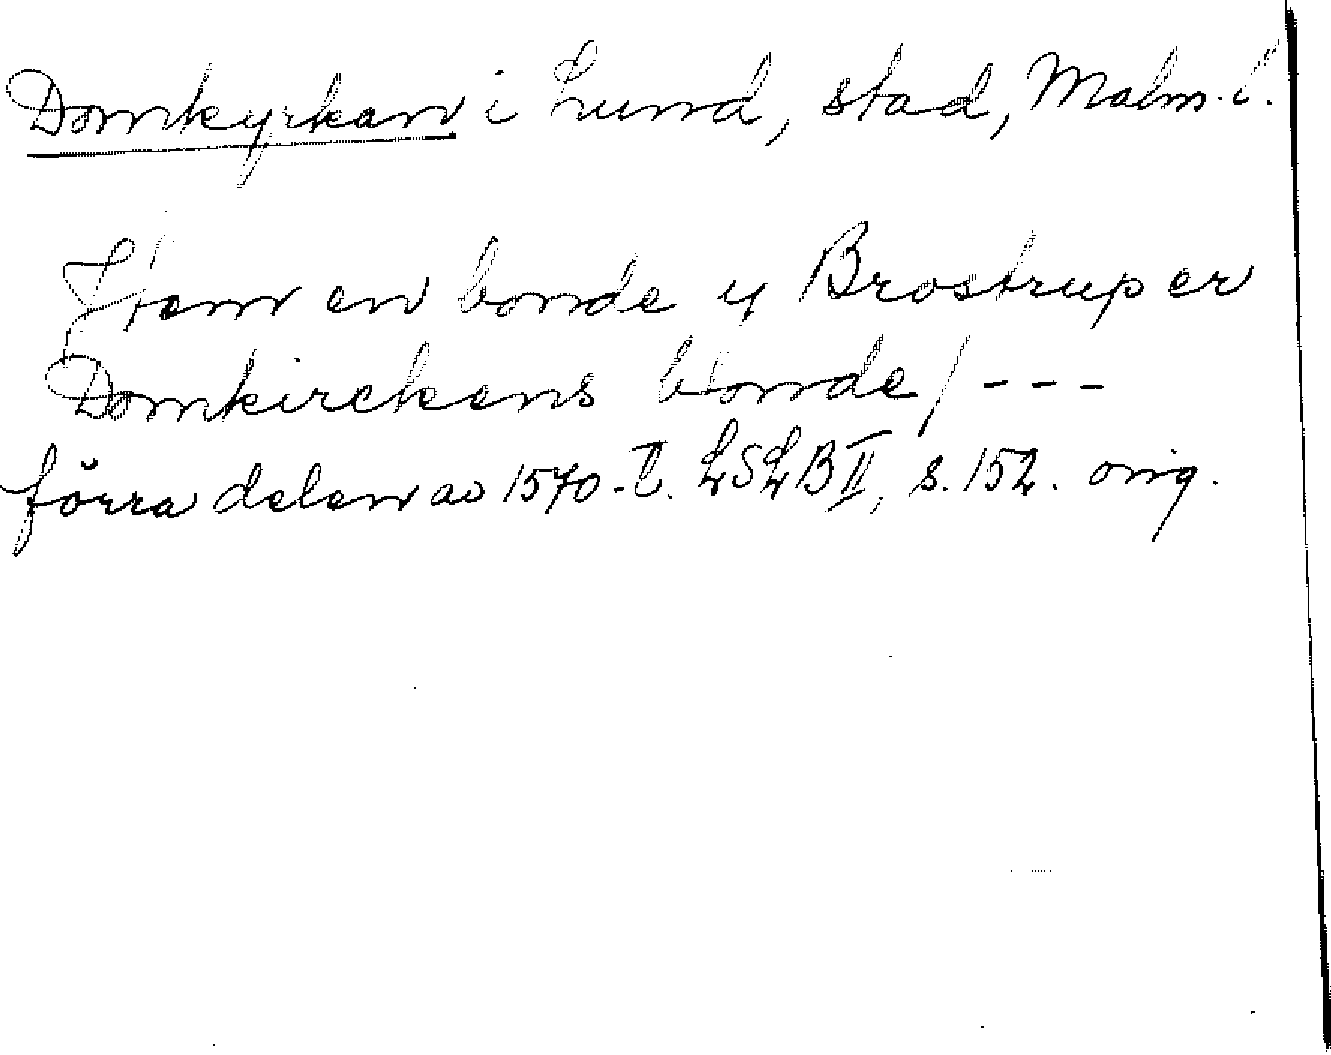 Domkyrkan i Lund, stad, Malm. l.
Item en bonde y Brostrup er
Domkirckens bonde / ---
förra delen av 1570-t. LSLB II, s. 152. orig.